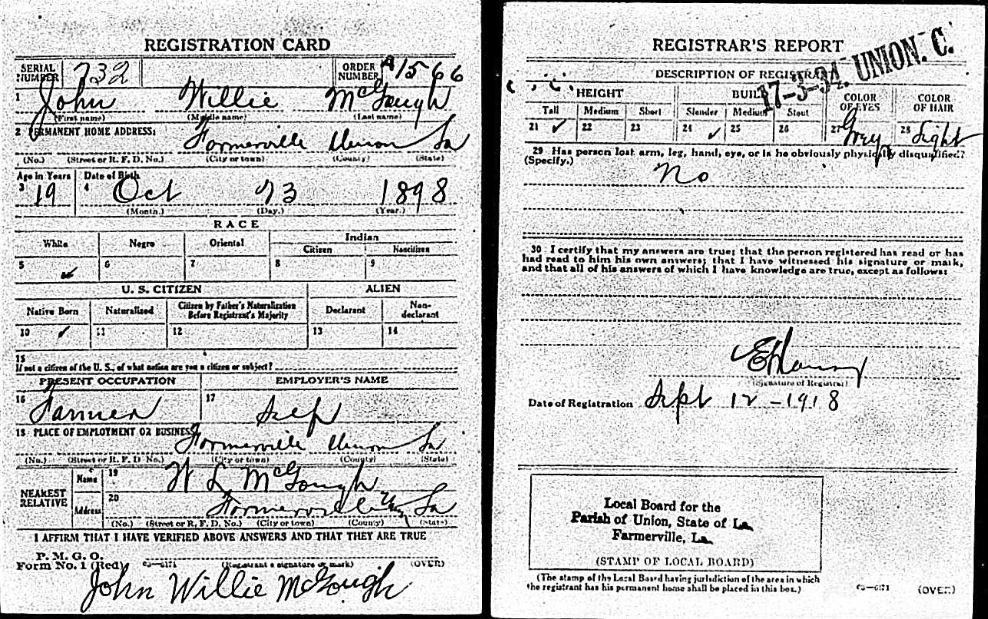 REGISTRATION CARD
SERIAL NUMBER 732
ORDER NUMBER A1566
1 John Willie McGough
(First name) (Middle name) (Last name)
2 PERMANENT HOME ADDRESS:
Farmerville Union La
(No.) (Street or R. F. D. No.) (City or town) (County) (State)
Age in Years Date of Birth
3 19 4 Oct 23 1898
(Month.) (Day.) (Year.)
RACE
White Negro Oriental Indian
Citizen Noncitizen
5 ✓ 6 7 8 9
U. S. CITIZEN ALIEN
Native Born Naturalized Citizen by Father's Naturalization Before Registrant's Majority Declarant Non-declarant
10 ✓ 11 12 13 14
15
If not a citizen of the U. S., of what nation are you a citizen or subject?
PRESENT OCCUPATION EMPLOYER'S NAME
16 Farmer 17 Self
18 PLACE OF EMPLOYMENT OR BUSINESS:
Farmerville Union La
(No.) (Street or R. F. D. No.) (City or town) (County) (State)
NEAREST RELATIVE
Name 19 W L McGough
Address 20 Farmerville La
(No.) (Street or R. F. D. No.) (City or town) (County) (State)
I AFFIRM THAT I HAVE VERIFIED ABOVE ANSWERS AND THAT THEY ARE TRUE
P. M. G. O.
Form No. 1 (Red) (Registrant's signature or mark) (OVER)
John Willie McGough
REGISTRAR'S REPORT
17-3-34. UNION. C.
DESCRIPTION OF REGISTRANT
HEIGHT BUILD COLOR OF EYES COLOR OF HAIR
Tall Medium Short Slender Medium Stout
21 ✓ 22 23 24 ✓ 25 26 27 Grey 28 Light
29 Has person lost arm, leg, hand, eye, or is he obviously physically disqualified?
(Specify.)
No
30 I certify that my answers are true; that the person registered has read or has
had read to him his own answers; that I have witnessed his signature or mark,
and that all of his answers of which I have knowledge are true, except as follows:
(Signature of Registrar)
Date of Registration Sept 12 - 1918
Local Board for the
Parish of Union, State of La.
Farmerville, La.
(STAMP OF LOCAL BOARD)
(The stamp of the Local Board having jurisdiction of the area in which
the registrant has his permanent home shall be placed in this box.)
(OVER)